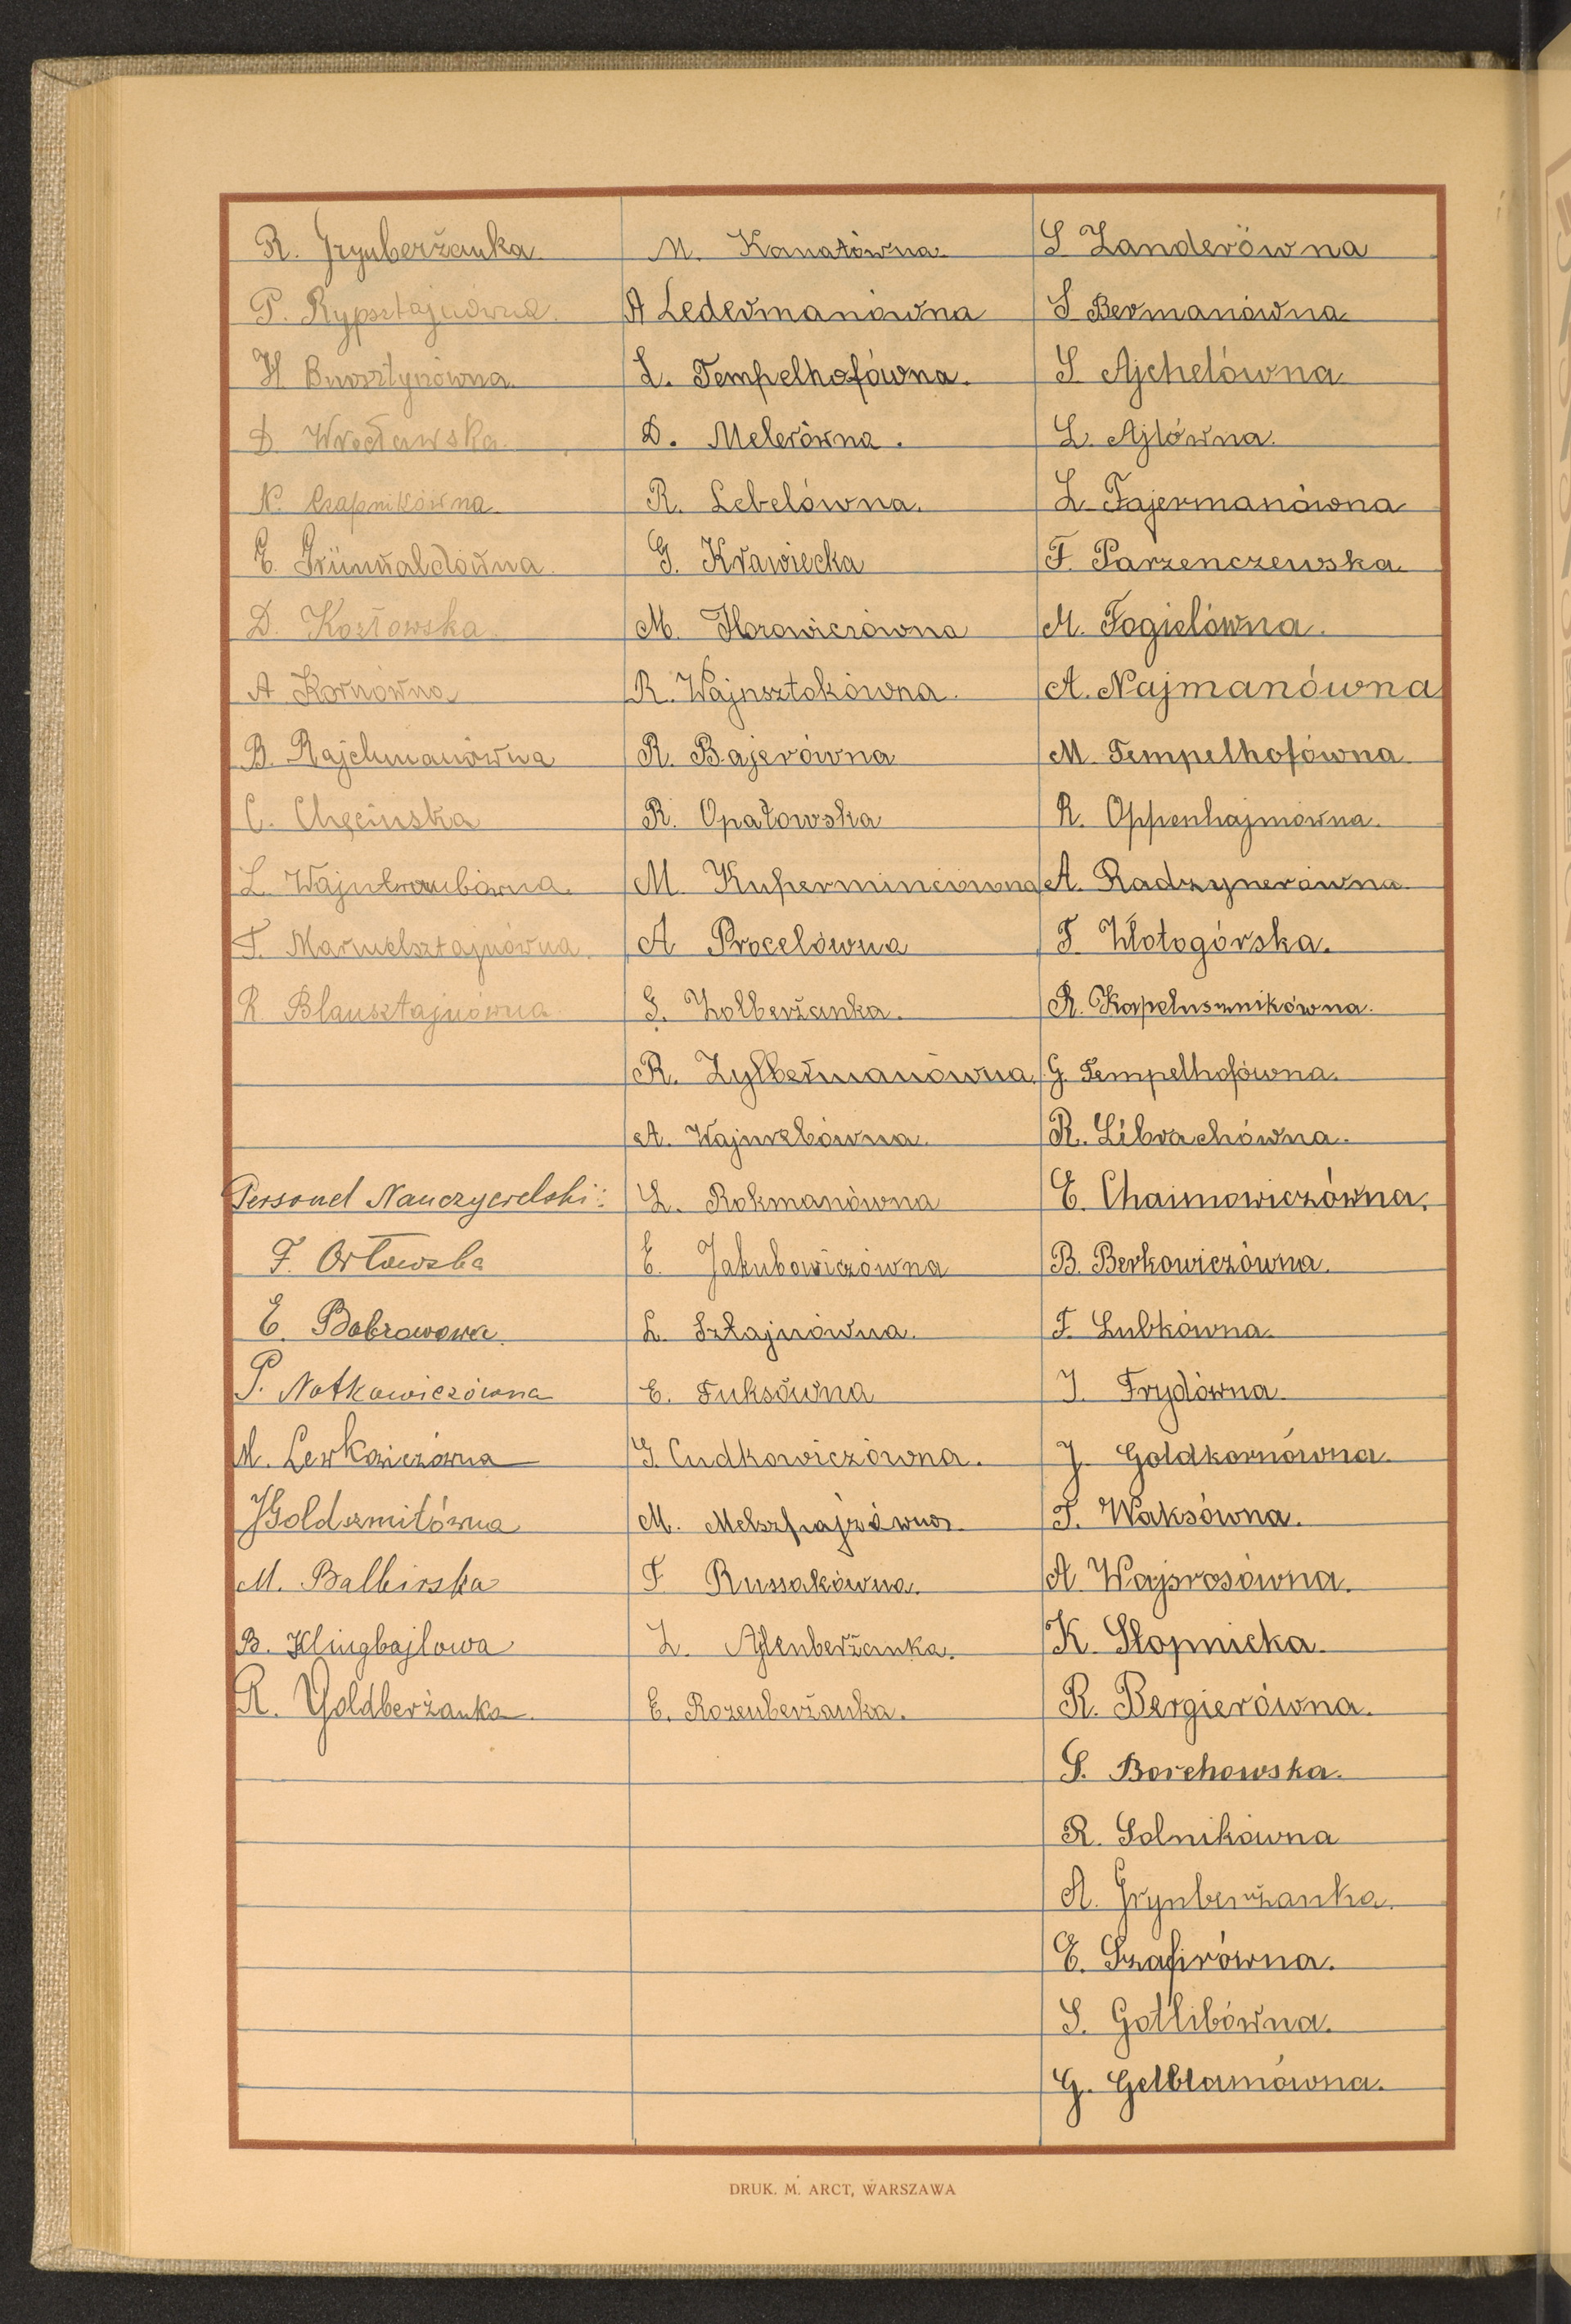 R. Grynberżanka
P. Rypsztajnówna.
H Bursztynówna.
D. Wrocławska.
N. Czapnikówna.
E. Grünwaldówna.
D. Kozłowska
A Kornówna
B. Rajchmanówna
C. Chęcińska
L. Wajntraubówna.
F. Marmelsztajnówna.
R Blausztajnówna
Personel Nauczycielski:
F. Orłowska
E. Bobrowowa
P. Natkowiczówna
M. Lewkowiczówna
J Goldszmitówna
M. Balbirska
B. Klingbajlowa
R. Goldberżanka.
M. Kanałówna.
A Ledermanówna
L. Tempelhofówna.
D. Melerówna.
R. Lebelówna.
G. Krawiecka
M. Horowiczówna
R. Wajnsztokówna.
R. Bajerówna
R. Opatowska
M. Kupermincówna
A Procelówna
G. Zolberżanka.
R. Zylbermanówna.
A. Wajnrebówna.
L. Rokmanówna
E. Jakubowiczówna
L. Sztajnówna.
E. Fuksówna
G. Cudkowiczówna.
M.
F. Russakówna.
L. Ajlenberżanka.
E. Rozenberżanka.
S Zanderówna
S Bermanówna.
S. Ajchelówna
L. Ajlówna.
L. Fajermanówna
F. Parzenczewska.
M. Fogielówna.
A. Najmanówna
M. Tempelhofówna.
R. Oppenhajmówna.
A. Radzynerówna.
F. Złotogórska.
R. Kapelusznikówna.
G. Tempelhofówna.
R. Librachówna.
E. Chaimowiczówna.
B. Berkowiczówna.
F. Lubkówna.
J. Frydówna.
J. Goldkornówna.
F. Waksówna.
A. Wajsrosówna.
K. Słopnicka.
R. Bergierówna.
S. Borchowska.
R. Solnikówna
A. Grynberżanka.
E. Szafirówna.
S. Gotlibówna.
G. Gelbtamówna.
DRUK. M. ARCT, WARSZAWA